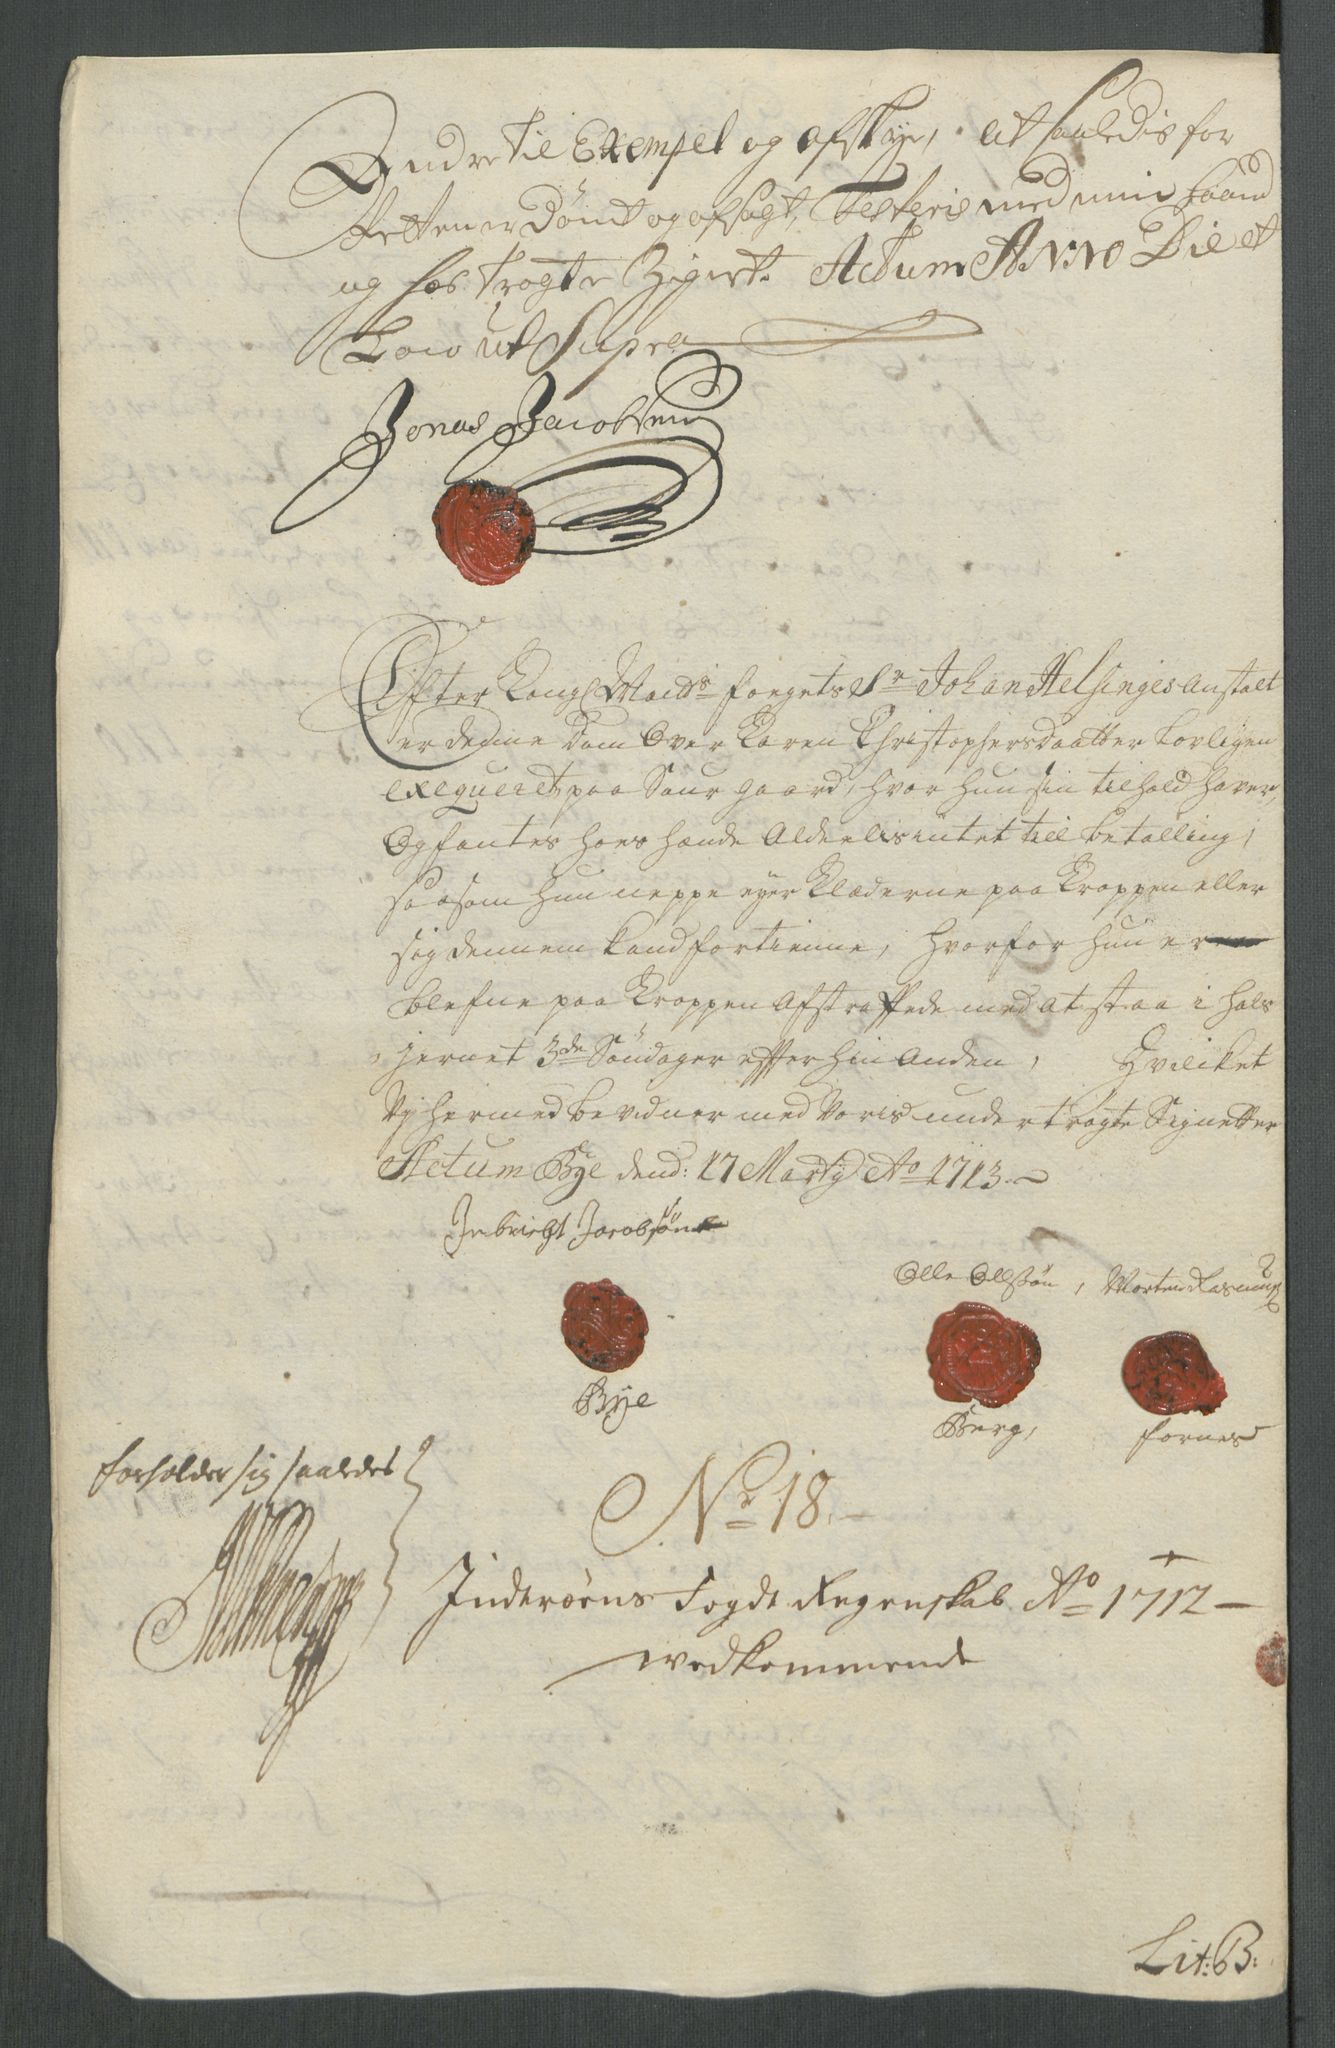 Andre til Exempel og afskye, at saaledis for
Retten er dømt og afsagt, Testeris med min haand
og hos trögte Zignt. Actum Anno Die et
Loco ut Supra
Jonas Jacobsen
Efter Kongl Maids fougets Sr Johan Helsinges anstalt
er denne dom over Karen Christophersdaatter lovligen
exequeret paa Saur gaard, hvor hun sin tilhold haver,
Og fantes hoes hænde Aldeelis intet till betalling,
saasom hun neppe eyer Klæderne paa Kroppen eller
sig dennem kand fortienne, hvorfor hun er
blefne paa Kroppen Afstraffede med at staa i hals
jernet 3de Söndager effter hin anden, Hvilcket
Vj hermed bevidner med Voris undertrögte Signetter
Actum Bye dend: 17 Martij Ao 1713.
Ingbricht Jacobsøn
Olle Ollssøn, Morten Rasmuss
Bye
Berg,
fornes
forholder sig saaledes
No 18.
Inderøens Fogde Regenskab Ao 1712
vedkommende
Lit: B: